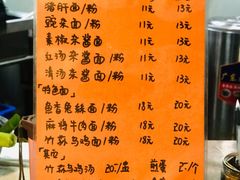 猪肝面/粉 11元 13元
豌杂面/粉 11元 13元
素椒杂酱面 11元 13元
红汤杂酱面/粉 11元 13元
清汤杂酱面/粉 11元 13元
「特色面」
鱼香兔丝面/粉 18元 20元
麻辣牛肉面/粉 18元 20元
竹荪乌鸡面/粉 18元 20元
「其它」
竹荪乌鸡汤 20元/盅 煎蛋 2元/个